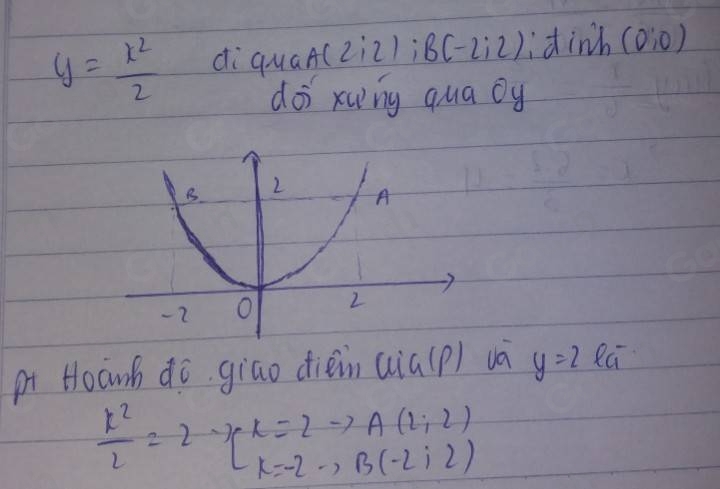 y = x²/2 đi qua A(2;2); B(-2;2); đỉnh (0;0)
đối xứng qua Oy
B 2 A
-2 O 2
pt Hoành độ giao điểm của (P) và y=2 là
x²/2 = 2 → [x=2 → A(2;2)
x=-2 → B(-2;2)